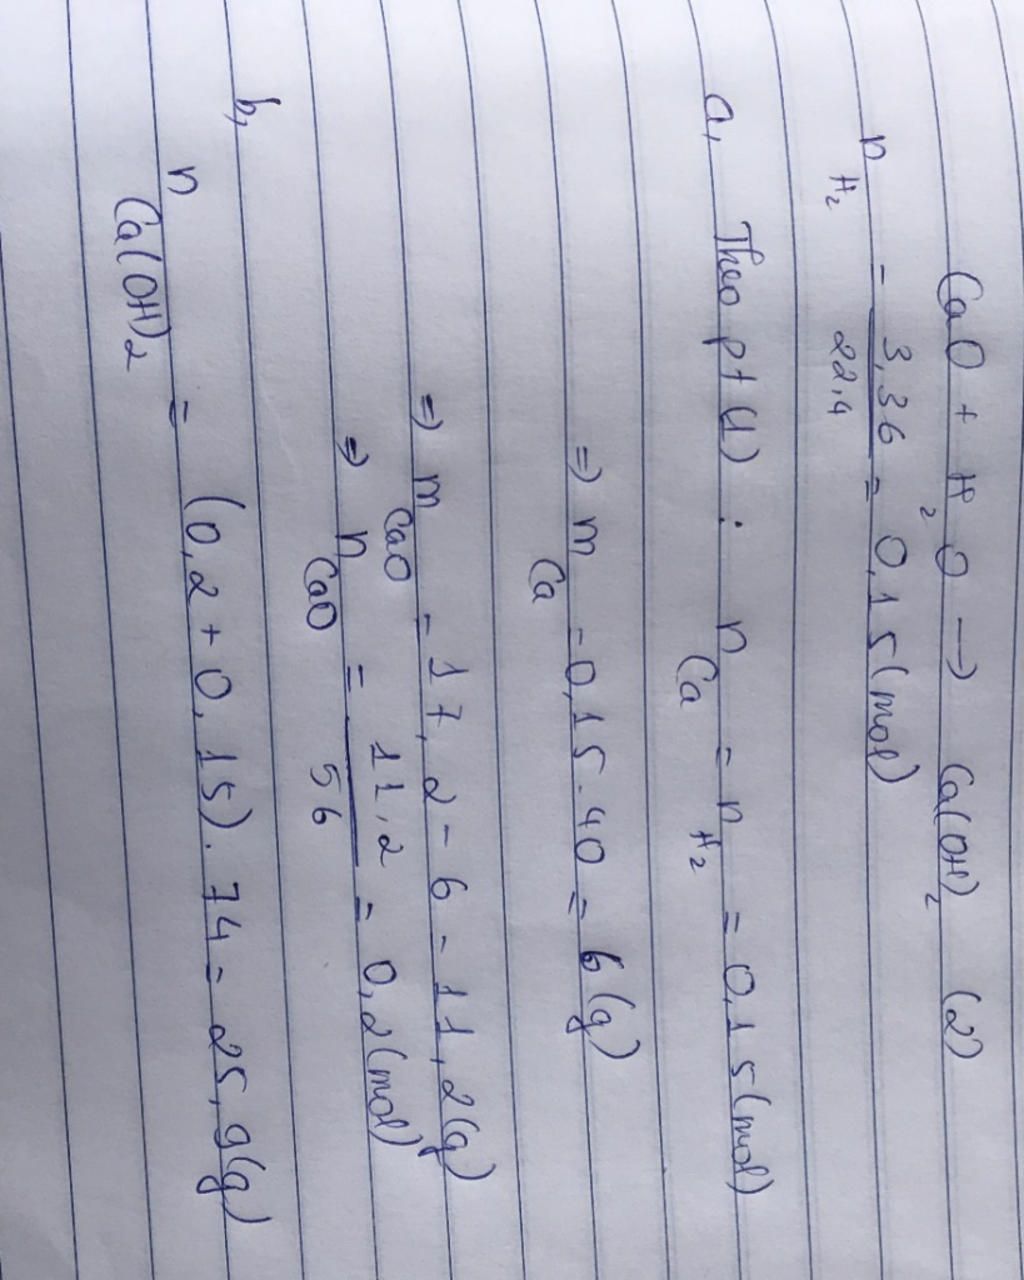 CaO + H₂O → Ca(OH)₂ (2)
n H₂ = 3,36/22,4 = 0,15 (mol)
a, Theo pt (1) : n Ca = n H₂ = 0,15 (mol)
=> m Ca = 0,15 . 40 = 6 (g)
=> m CaO = 17,2 - 6 = 11,2 (g)
=> n CaO = 11,2/56 = 0,2 (mol)
b, n Ca(OH)₂ = (0,2 + 0,15) . 74 = 25,9 (g)